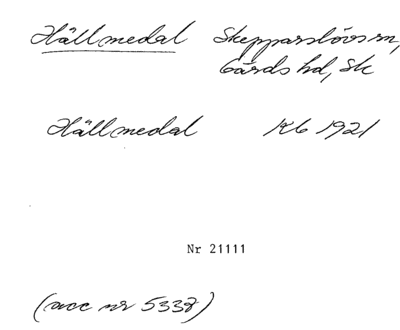 Hällmedal Skepparslövs sn,
Gärds hd, Sk
Hällmedal Kb 1921
Nr 21111
(acc nr 5338)